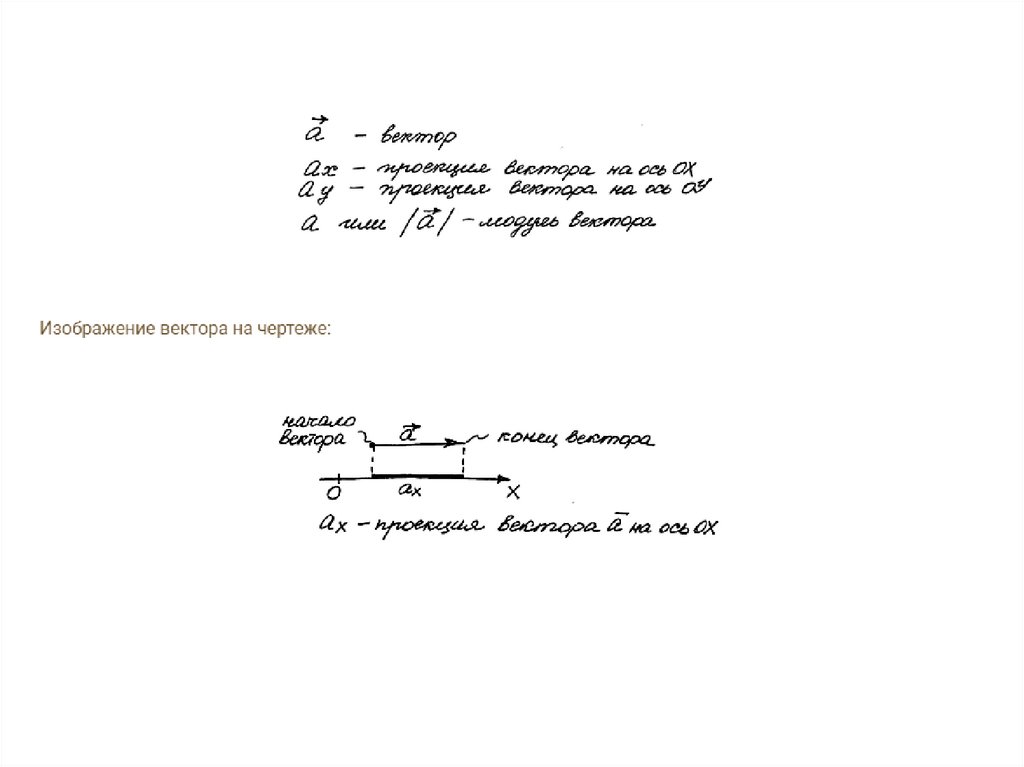 a⃗ – вектор
ax – проекция вектора на ось OX
ay – проекция вектора на ось OY
a или |a⃗| – модуль вектора
Изображение вектора на чертеже:
начало
вектора
a⃗
конец вектора
0 ax X
ax – проекция вектора a̅ на ось OX